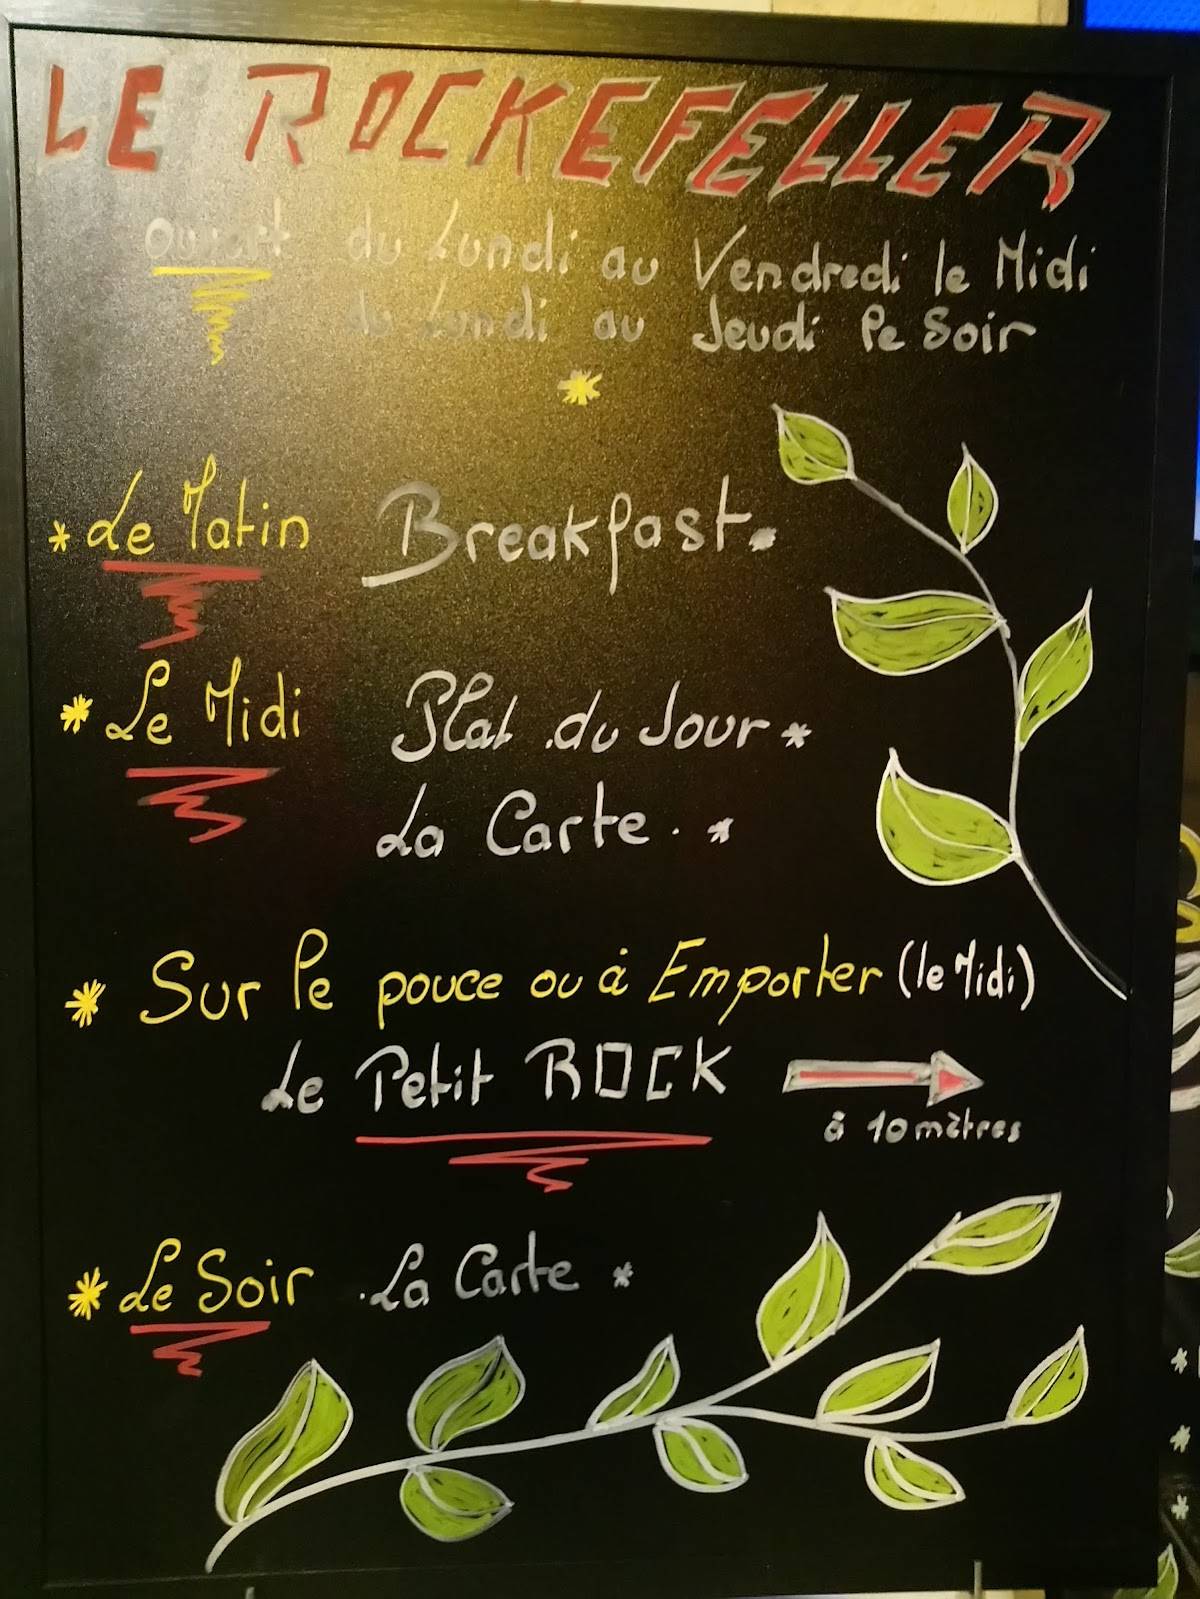 LE ROCKEFELLER
Ouvert du Lundi au Vendredi le Midi
du Lundi au Jeudi le Soir
*
* Le Matin Breakfast *
* Le Midi Plat du Jour *
La Carte . *
* Sur le pouce ou à Emporter (le Midi)
Le Petit ROCK
à 10 mètres
* Le Soir . La Carte *